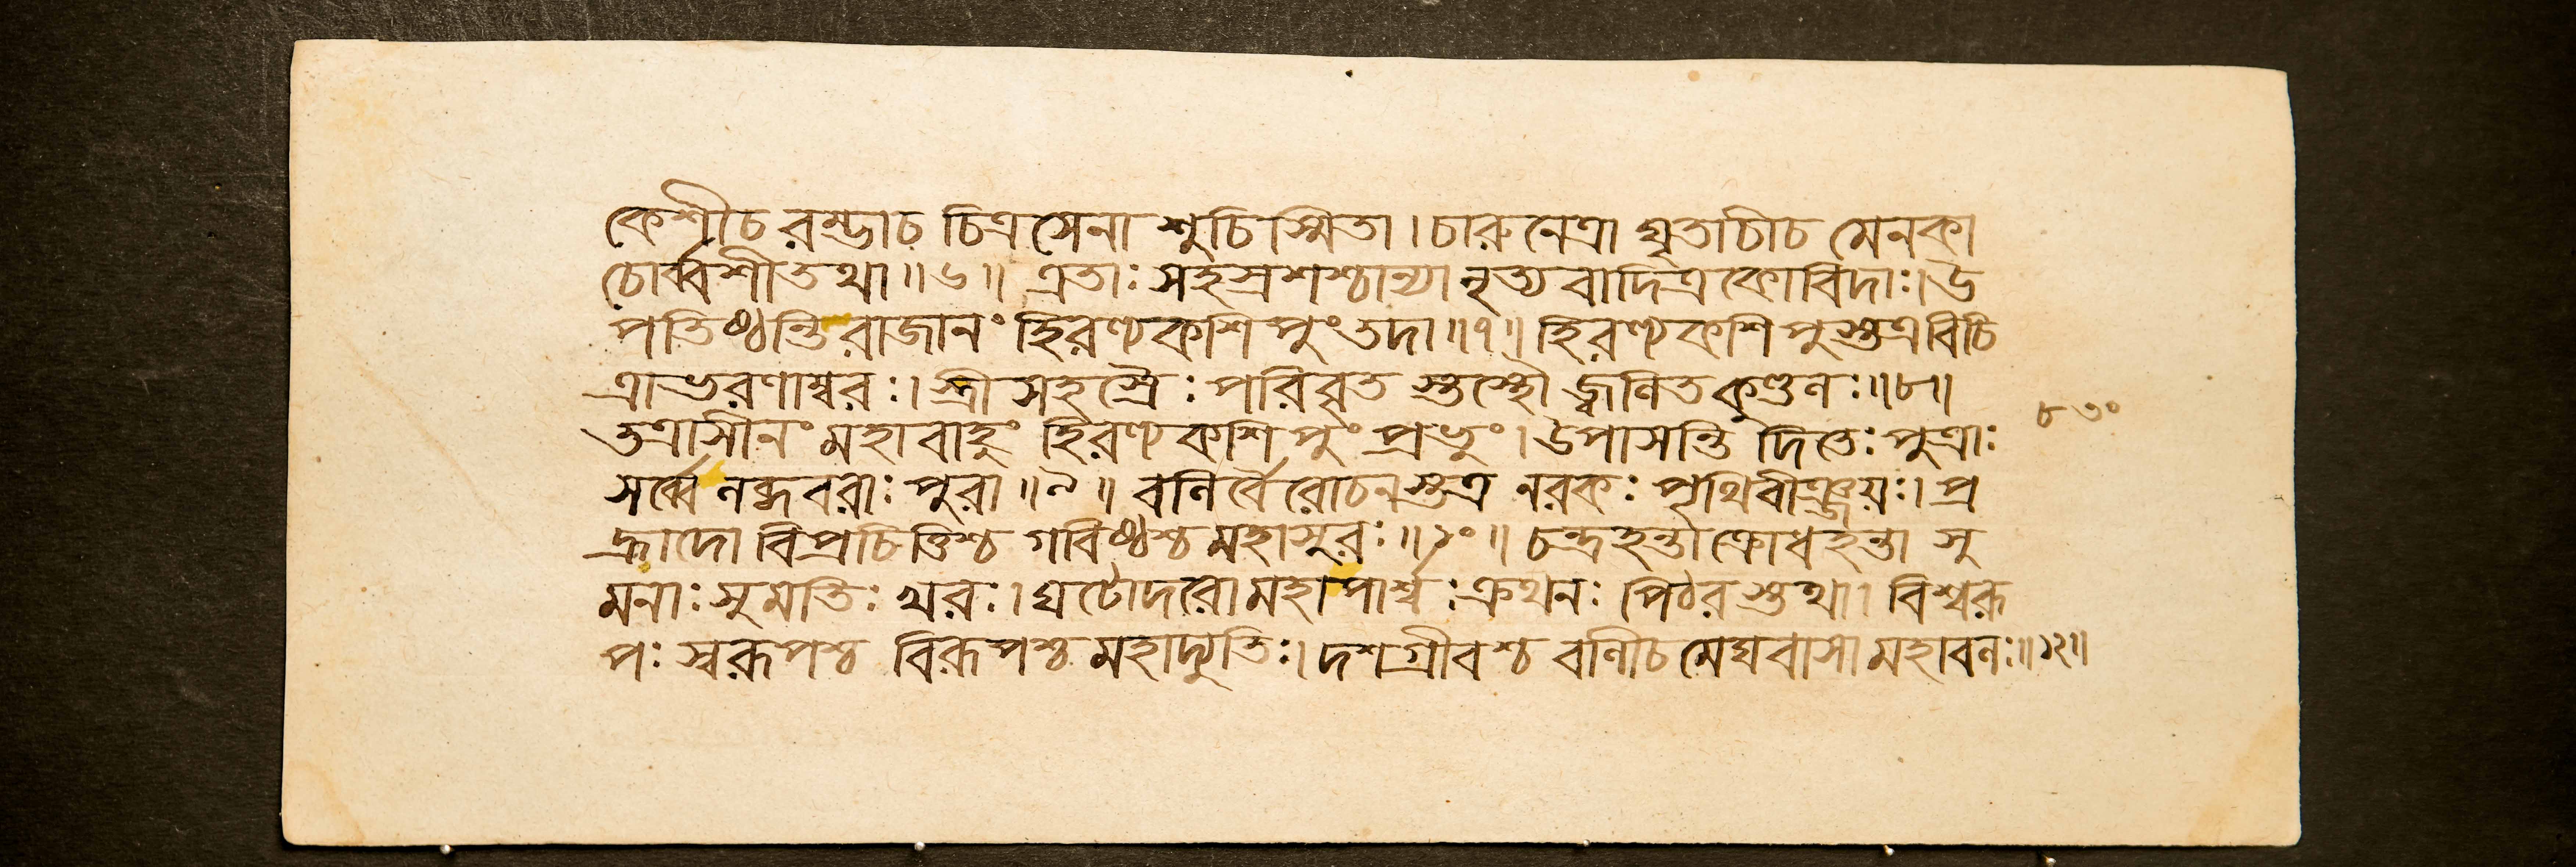 কেশীচ রম্ভাচ চিত্রসেনা শুচিস্মিতা। চারুনেত্রা ঘৃতাচীচ মেনকা
চোর্ব্বশীতথা॥৬॥ এতাঃ সহস্রশশ্চান্যা নৃত্যবাদিত্রকোবিদাঃ। উ
পতিষ্ঠন্তি রাজানং হিরণ্যকশিপুং তদা॥৭॥ হিরণ্যকশিপুস্তত্রবিচি
ত্রাভরণাম্বরঃ। স্ত্রীসহস্রৈঃ পরিবৃত স্তস্থৌ জ্বলিতকুণ্ডলঃ॥৮॥
তত্রাসীনং মহাবাহুং হিরণ্যকশিপুং প্রভুং। উপাসন্তি দিতেঃ পুত্রাঃ
সর্ব্বে লব্ধবরাঃ পুরা॥৯॥ বলির্বৈরোচনস্তত্র নরকঃ পৃথিবীঞ্জয়ঃ। প্র
হ্লাদো বিপ্রচিত্তিশ্চ গবিষ্ঠশ্চ মহাসুরঃ॥১০॥ চন্দ্রহন্তাক্রোধহন্তা সু
মনাঃ সুমতিঃ খরঃ। ঘটোদরোমহাপার্শ্বঃ ক্রথনঃ পিঠরস্তথা। বিশ্বরূ
পঃ স্বরূপশ্চ বিরূপশ্চ মহাদ্যুতিঃ। দশগ্রীবশ্চ বালীচ মেঘবাসা মহাবলঃ॥১২॥